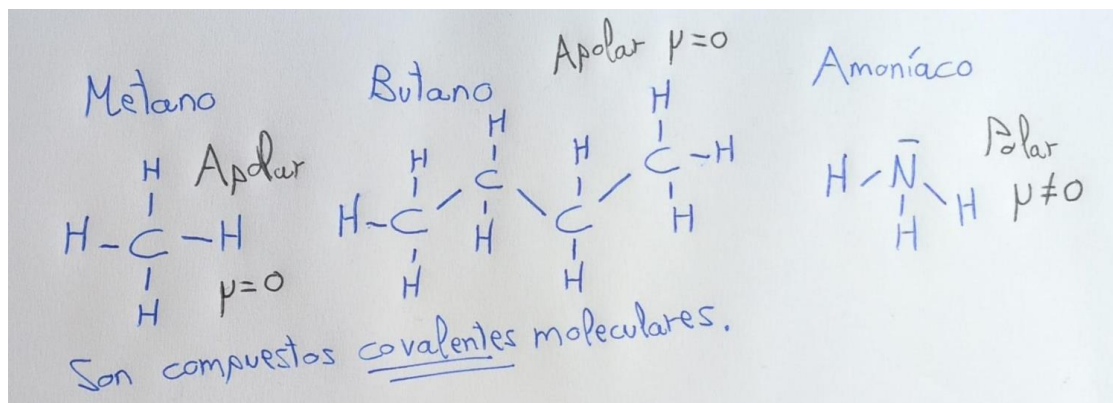 Metano
Apolar
H
H-C-H
H
μ=0
Butano
Apolar μ=0
H
H
H
H
H-C
C
C
C-H
H
H
H
H
Amoníaco
Polar
μ≠0
H-N̄-H
H
Son compuestos covalentes moleculares.